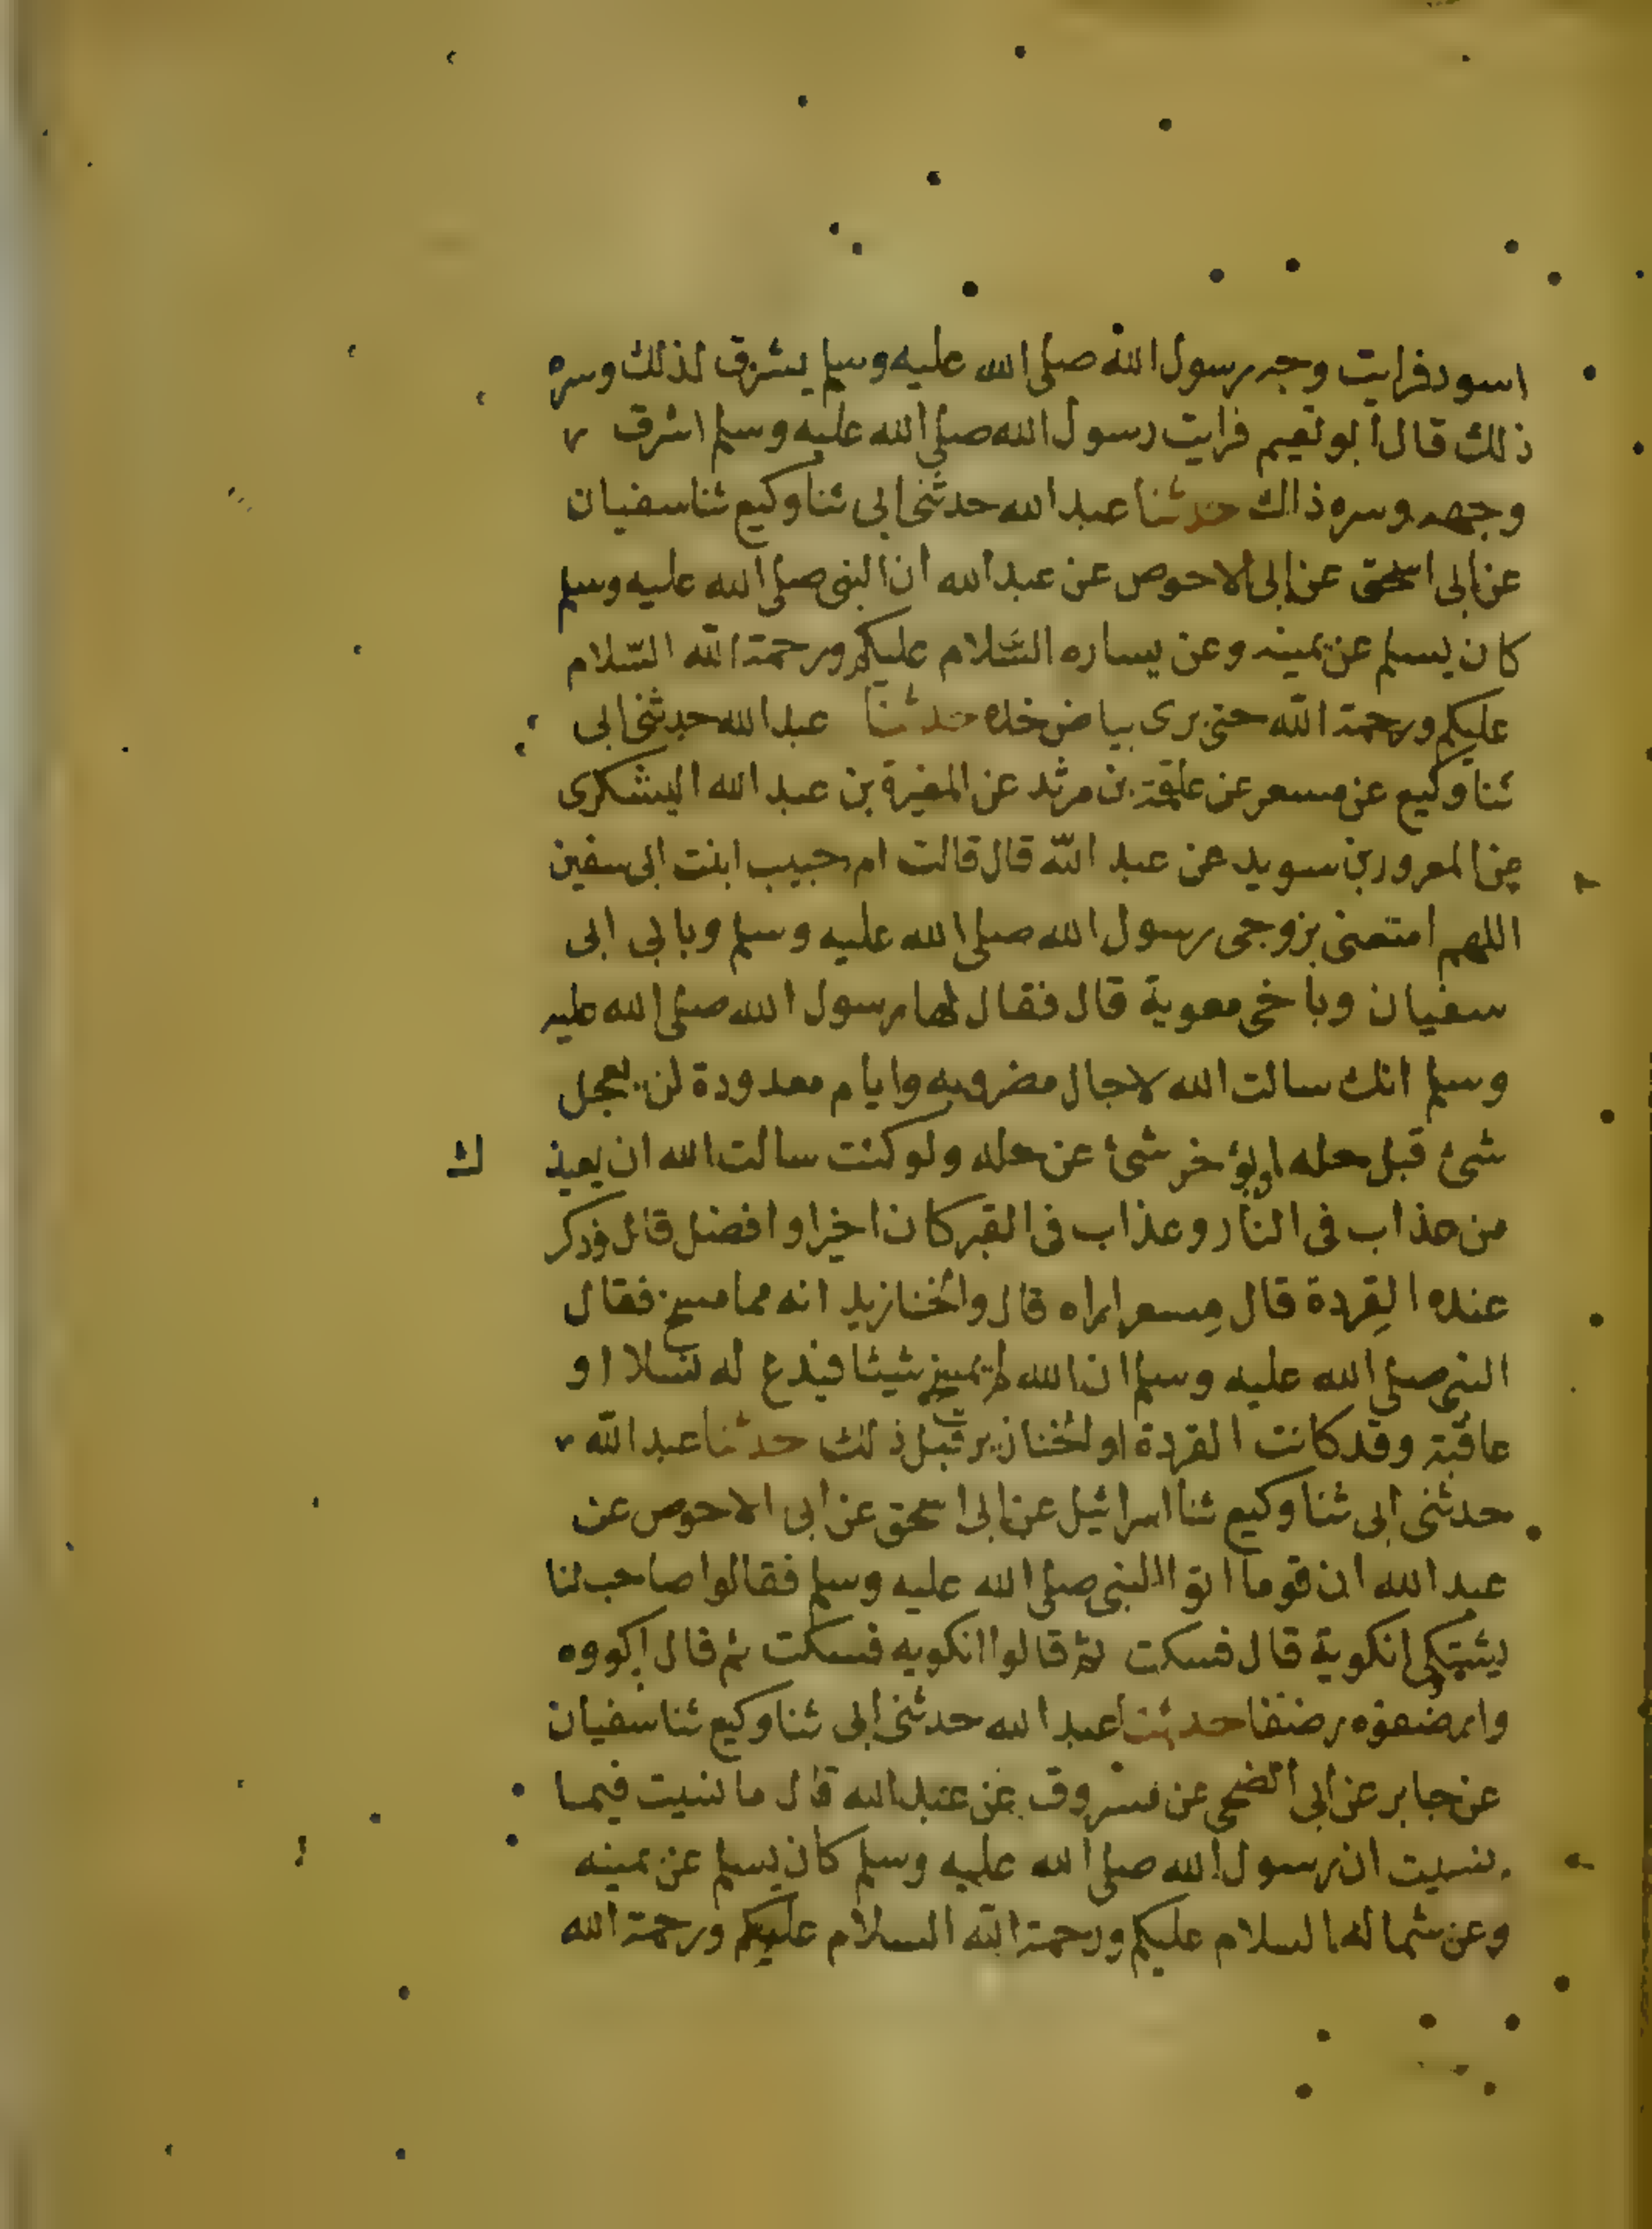 اسود فرايت وجه رسول الله صلى الله عليه وسلم يشرق لذلك وسره
ذلك قال ابو نعيم فرايت رسول الله صلى الله عليه وسلم اشرق
وجهه وسره ذالك حدثنا عبد الله حدثنى ابى ثنا وكيع ثنا سفيان
عن ابى اسحق عن ابى الاحوص عن عبد الله ان النبى صلى الله عليه وسلم
كان يسلم عن يمينه وعن يساره السّلام عليكم ورحمة الله السّلام
عليكم ورحمة الله حتى يرى بياض خده حدثنا عبد الله حدثنى ابى
ثنا وكيع عن مسعر عن علقمة بن مرثد عن المغيرة بن عبد الله اليشكرى
عن المعرور بن سويد عن عبد الله قال قالت ام حبيب ابنت ابى سفين
اللهم امتعنى بزوجى رسول الله صلى الله عليه وسلم وبابى ابى
سفيان وباخى معوية قال فقال لها رسول الله صلى الله عليه
وسلم انك سالت الله لاجال مضروبه وايام معدودة لن يعجل
شئ قبل حله او يؤخر شئ عن حله ولو كنت سالت الله ان يعيذ ك
من عذاب فى النار وعذاب فى القبر كان اخيرا وافضل قال وذكر
عنده القِردة قال مِسعر اراه قال والخنازيد انه مما مسخ فقال
النبى صلى الله عليه وسلم ان الله لم شيئا فيدع له نسلا او
عاقبة وقد كانت القردة او الخنازير قبل ذلك حدثنا عبد الله
حدثنى ابى ثنا وكيع ثنا اسرائيل عن ابى اسحق عن ابى الاحوص عن
عبد الله ان قوما اتوا النبى صلى الله عليه وسلم فقالوا صاحب لنا
يشتكى انكوية قال فسكت ثم قالوا انكويه فسكت ثم قال اكووه
وارضفوه رضفا حدثنا عبد الله حدثنى ابى ثنا وكيع ثنا سفيان
عن جابر عن ابى الضحى عن مسروق عن عبد الله قال ما نسيت فيما
نسيت ان رسول الله صلى الله عليه وسلم كان يسلم عن يمينه
وعن شماله السلام عليكم ورحمة الله السلام عليكم ورحمة الله